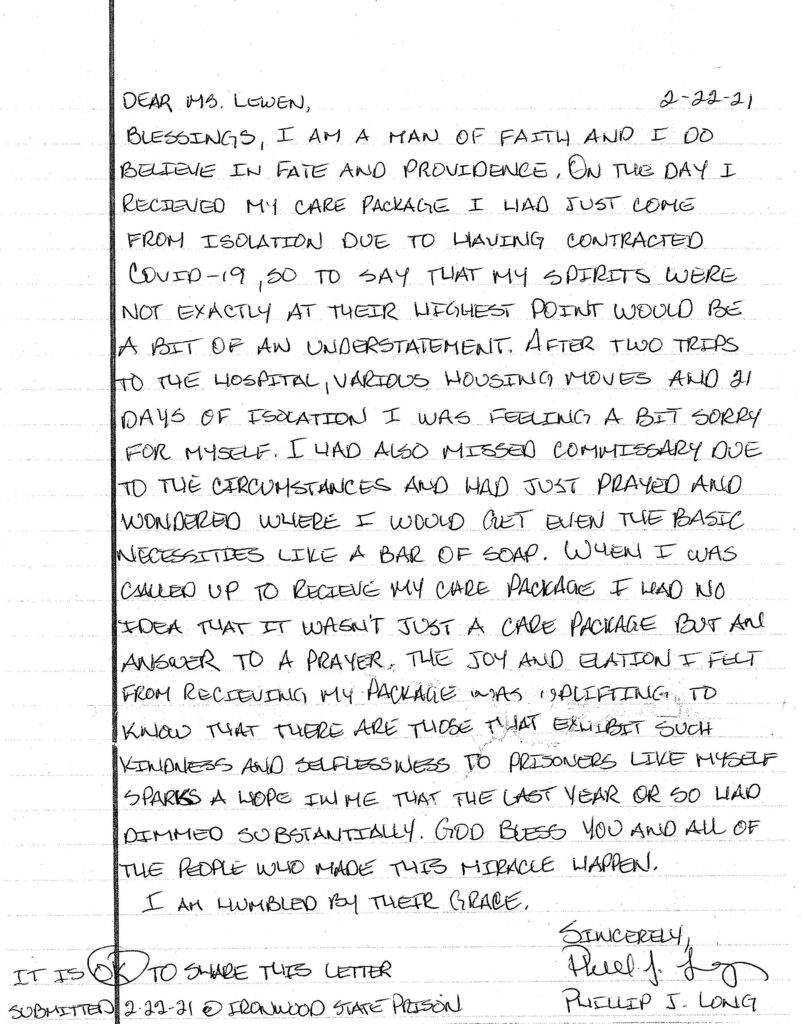 DEAR MS. LEWEN, 2-22-21
BLESSINGS, I AM A MAN OF FAITH AND I DO
BELIEVE IN FATE AND PROVIDENCE. ON THE DAY I
RECIEVED MY CARE PACKAGE I HAD JUST COME
FROM ISOLATION DUE TO HAVING CONTRACTED
COVID-19, SO TO SAY THAT MY SPIRITS WERE
NOT EXACTLY AT THEIR HIGHEST POINT WOULD BE
A BIT OF AN UNDERSTATEMENT. AFTER TWO TRIPS
TO THE HOSPITAL, VARIOUS HOUSING MOVES AND 21
DAYS OF ISOLATION I WAS FEELING A BIT SORRY
FOR MYSELF. I HAD ALSO MISSED COMMISSARY DUE
TO THE CIRCUMSTANCES AND HAD JUST PRAYED AND
WONDERED WHERE I WOULD GET EVEN THE BASIC
NECESSITIES LIKE A BAR OF SOAP. WHEN I WAS
CALLED UP TO RECIEVE MY CARE PACKAGE I HAD NO
IDEA THAT IT WASN'T JUST A CARE PACKAGE BUT AN
ANSWER TO A PRAYER. THE JOY AND ELATION I FELT
FROM RECIEVING MY PACKAGE WAS UPLIFTING, TO
KNOW THAT THERE ARE THOSE THAT EXHIBIT SUCH
KINDNESS AND SELFLESSNESS TO PRISONERS LIKE MYSELF
SPARKS A HOPE IN ME THAT THE LAST YEAR OR SO HAD
DIMMED SUBSTANTIALLY. GOD BLESS YOU AND ALL OF
THE PEOPLE WHO MADE THIS MIRACLE HAPPEN.
I AM HUMBLED BY THEIR GRACE.
SINCERELY,
Phill J. Long
PHILLIP J. LONG
IT IS OK TO SHARE THIS LETTER
SUBMITTED 2-22-21 @ IRONWOOD STATE PRISON